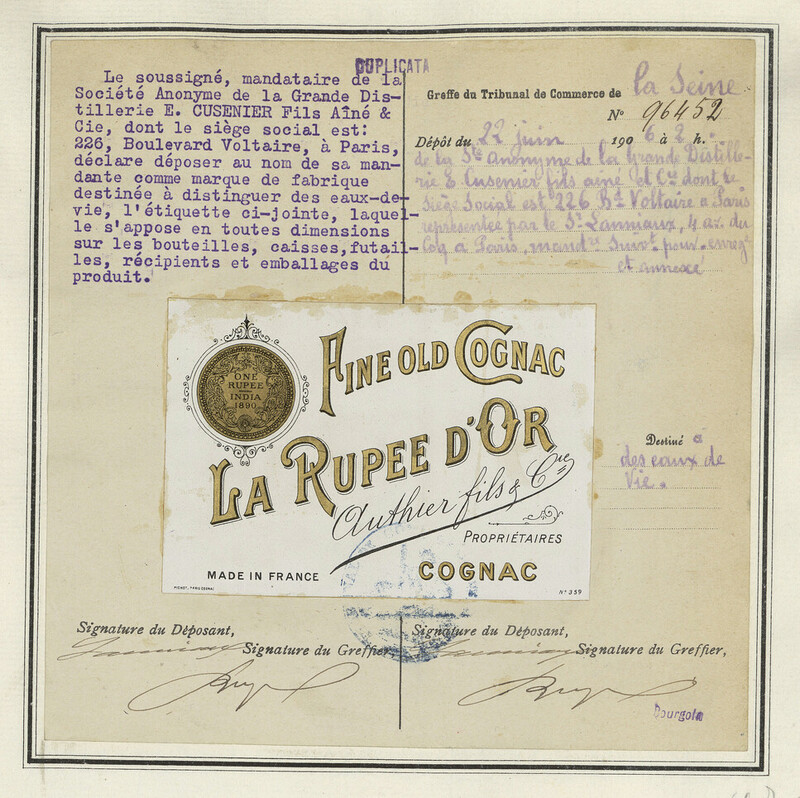 DUPLICATA
Le soussigné, mandataire de la
Société Anonyme de la Grande Dis-
tillerie E. CUSENIER Fils Aîné &
Cie, dont le siège social est:
226, Boulevard Voltaire, à Paris,
déclare déposer au nom de sa man-
dante comme marque de fabrique
destinée à distinguer des eaux-de-
vie, l'étiquette ci-jointe, laquel-
le s'appose en toutes dimensions
sur les bouteilles, caisses,futail-
les, récipients et emballages du
produit.
Greffe du Tribunal de Commerce de la Seine
N° 96452
Dépôt du 22 juin 1906 à 2 h.
de la Sté Anonyme de la Grande Distille-
rie E. Cusenier fils ainé et Cie dont le
Siège Social est 226 Bd Voltaire a Paris
représentée par le Sr Lanniaux, 4 av. du
Coq a Paris, mandre Suivt. pouv. enregé
et annexé
ONE
RUPEE
INDIA
1890
FINE OLD COGNAC
LA RUPEE D'OR
Authier fils & Cie
PROPRIÉTAIRES
MADE IN FRANCE
COGNAC
N° 359
Destiné a
des eaux de
Vie.
Signature du Déposant,
Signature du Greffier,
Signature du Déposant,
Signature du Greffier,
Bourgoin